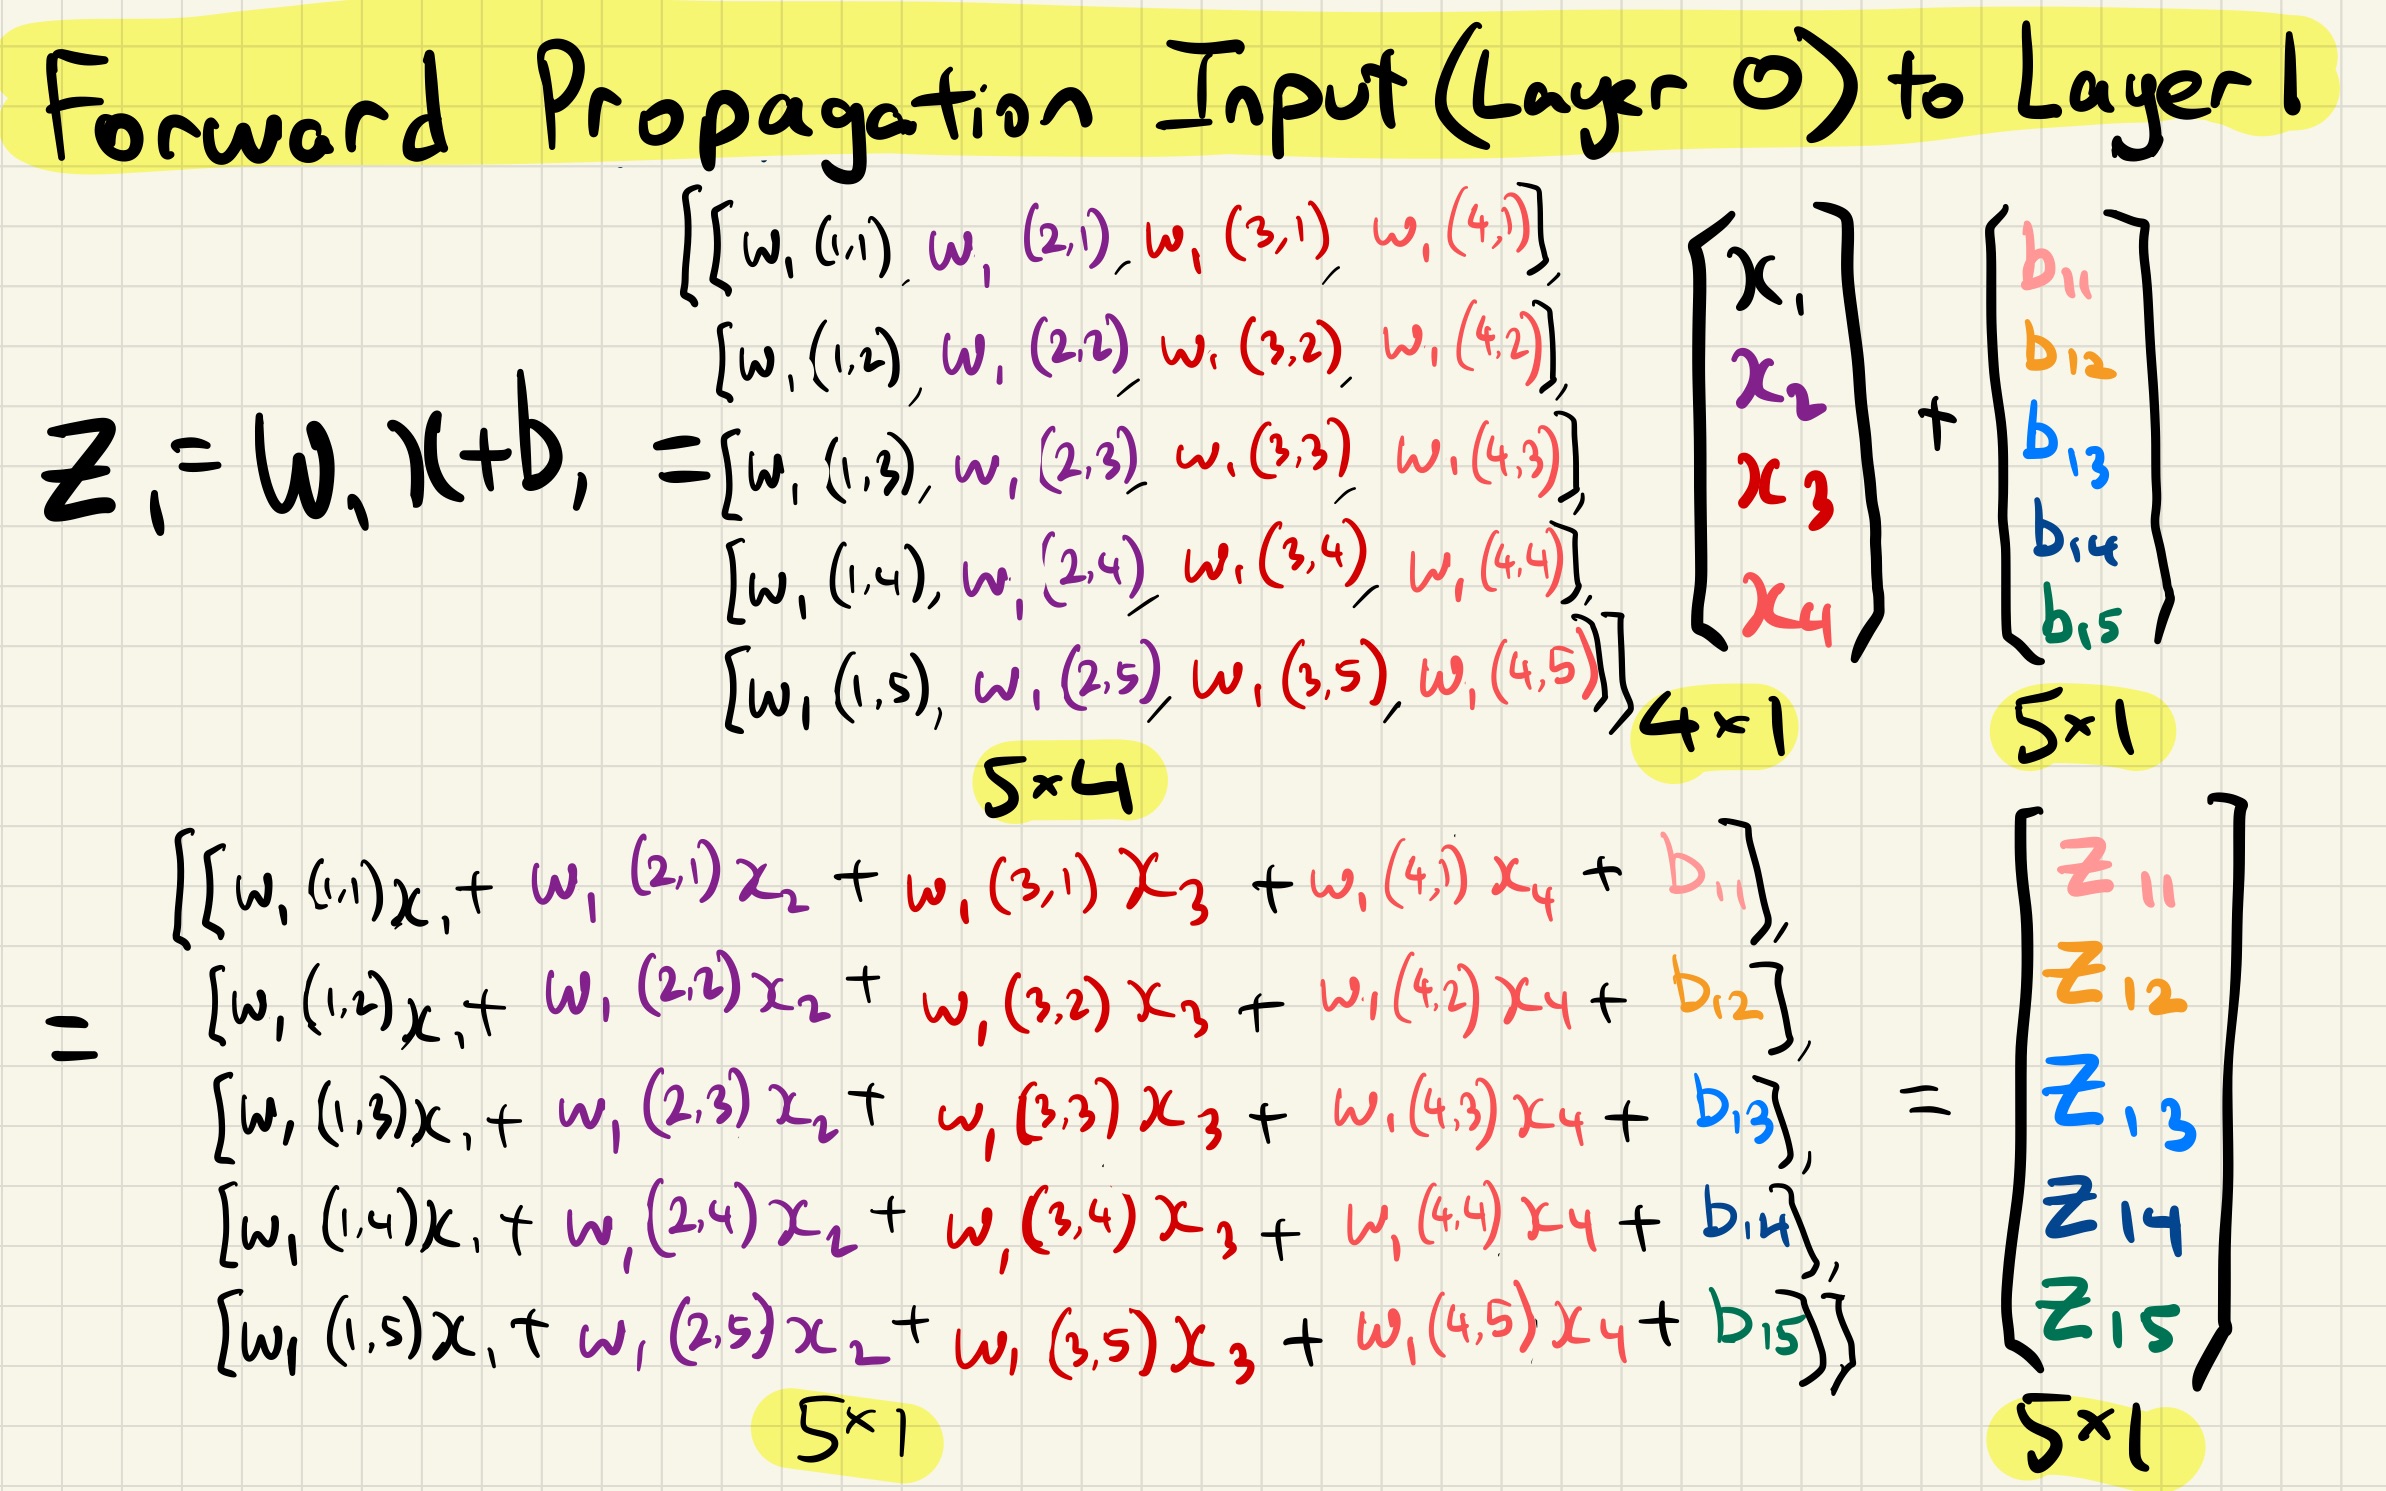 Forward Propagation Input (Layer 0) to Layer 1
Z₁ = W₁ x + b₁ =
[[w₁ (1,1), w₁ (2,1), w₁ (3,1) w₁ (4,1)],
[w₁ (1,2), w₁ (2,2), w₁ (3,2), w₁ (4,2)],
[w₁ (1,3), w₁ (2,3), w₁ (3,3), w₁ (4,3)],
[w₁ (1,4), w₁ (2,4), w₁ (3,4), w₁ (4,4)],
[w₁ (1,5), w₁ (2,5), w₁ (3,5), w₁ (4,5)]]
5×4
[x₁
x₂
x₃
x₄]
4×1
+
[b₁₁
b₁₂
b₁₃
b₁₄
b₁₅]
5×1
=
[[w₁ (1,1)x₁ + w₁ (2,1)x₂ + w₁ (3,1)x₃ + w₁ (4,1)x₄ + b₁₁],
[w₁ (1,2)x₁ + w₁ (2,2)x₂ + w₁ (3,2)x₃ + w₁ (4,2)x₄ + b₁₂],
[w₁ (1,3)x₁ + w₁ (2,3)x₂ + w₁ (3,3)x₃ + w₁ (4,3)x₄ + b₁₃],
[w₁ (1,4)x₁ + w₁ (2,4)x₂ + w₁ (3,4)x₃ + w₁ (4,4)x₄ + b₁₄],
[w₁ (1,5)x₁ + w₁ (2,5)x₂ + w₁ (3,5)x₃ + w₁ (4,5)x₄ + b₁₅]]
5×1
=
[Z₁₁
Z₁₂
Z₁₃
Z₁₄
Z₁₅]
5×1